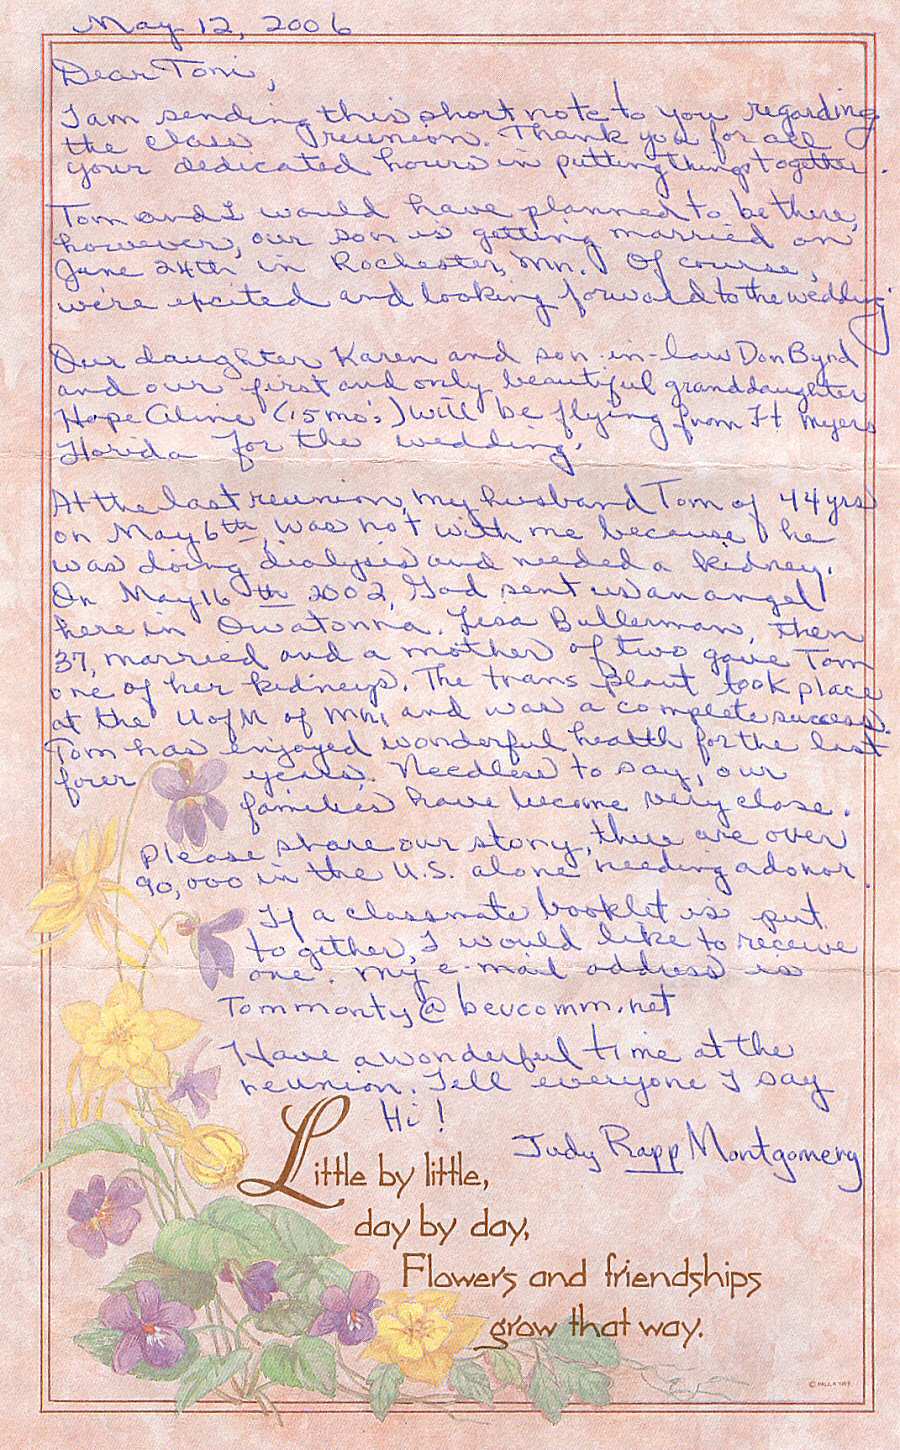 May 12, 2006
Dear Toni,
I am sending this short note to you regarding
the class reunion. Thank you for all
your dedicated hours in putting things together.
Tom and I would have planned to be there,
however, our son is getting married on
June 24th in Rochester, Mn. Of course,
we're excited and looking forward to the wedding.
Our daughter Karen and son-in-law Don Byrd
and our first and only beautiful granddaughter
Hope Aline (15 mo's) will be flying from Ft Myers
Florida for the wedding.
At the last reunion, my husband Tom of 44 yrs
on May 6th, was not with me because he
was doing dialysis and needed a kidney.
On May 16th 2002, God sent us an angel
here in Owatonna. Lisa Bullerman, then
37, married and a mother of two gave Tom
one of her kidneys. The transplant took place
at the U of M of Mn, and was a complete success.
Tom has enjoyed wonderful health for the last
four years. Needless to say, our
families have become very close.
Please share our story, there are over
90,000 in the U.S. alone needing a donor.
If a classmate booklet is put
together, I would like to receive
one. My e-mail address is
Tommonty@bevcomm.net
Have a wonderful time at the
reunion. Tell everyone I say
Hi!
Judy Rapp Montgomery
Little by little,
day by day,
Flowers and friendships
grow that way.